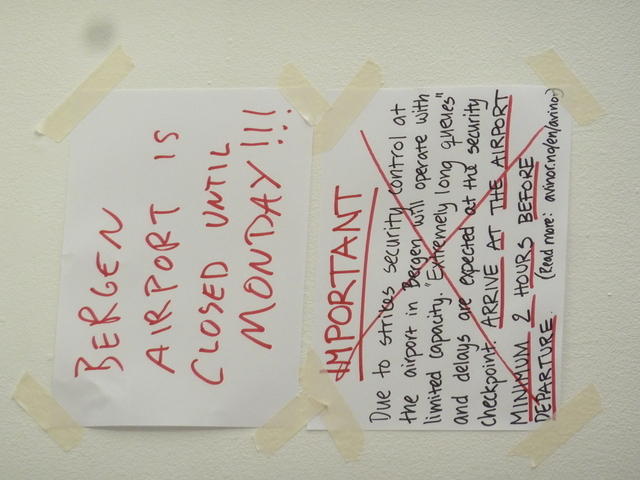 BERGEN
AIRPORT IS
CLOSED UNTIL
MONDAY!!!
IMPORTANT
Due to strikes security control at
the airport in Bergen will operate with
limited capacity. "Extremely long queues"
and delays are expected at the security
checkpoint. ARRIVE AT THE AIRPORT
MINIMUM 2 HOURS BEFORE
DEPARTURE. (Read more: avinor.no/en/avinor)